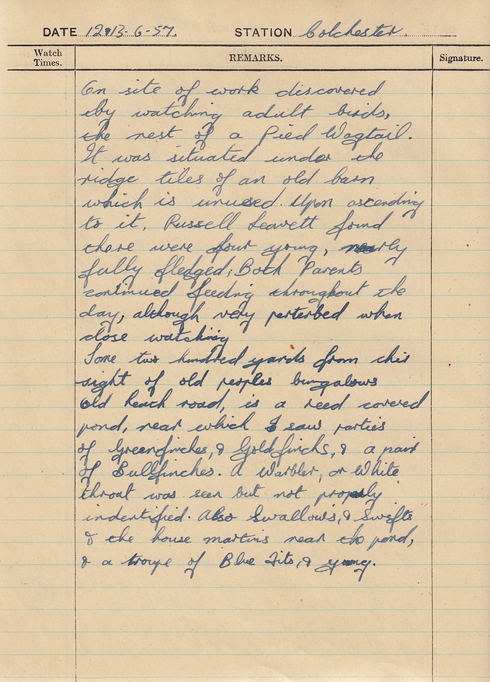 DATE 12&13-6-57. STATION Colchester.
Watch Times. REMARKS. Signature.
On site of work discovered
by watching adult birds,
the nest of a Pied Wagtail.
It was situated under the
ridge tiles of an old barn
which is unused. Upon ascending
to it, Russell Leavett found
there were four young, nearly
fully fledged; Both Parents
continued feeding throughout the
day, although very perterbed when
close watching
Some two hundred yards from this
sight of old peoples bungalows
old heath road, is a reed covered
pond, near which I saw parties
of Greenfinches, & Goldfinchs, & a pair
of Bullfinches. A Warbler, or White
throat was seen but not properly
indentified. Also Swallows, & Swifts
& the house martins near the pond,
& a troupe of Blue Tits, & young.